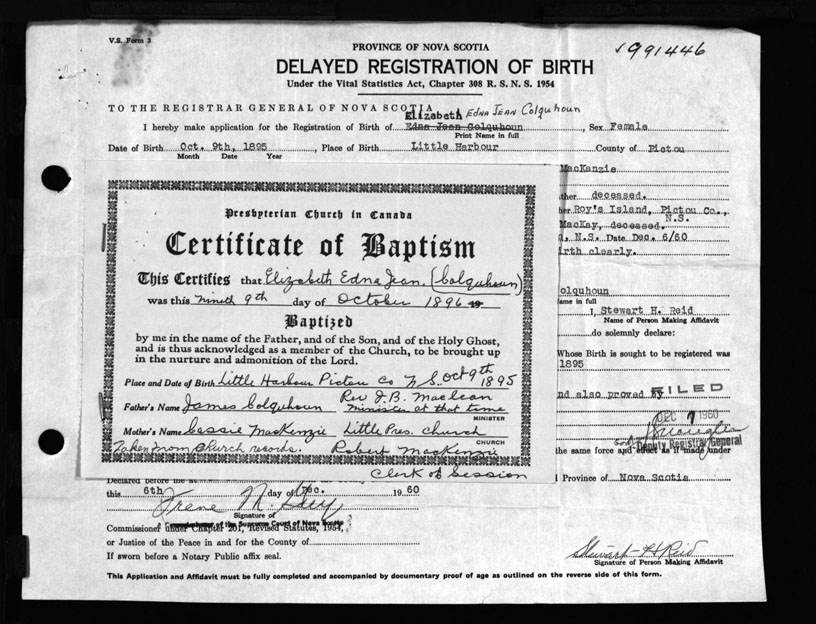 V.S. Form 3
991446
PROVINCE OF NOVA SCOTIA
DELAYED REGISTRATION OF BIRTH
Under the Vital Statistics Act, Chapter 308 R. S. N. S. 1954
TO THE REGISTRAR GENERAL OF NOVA SCOTIA
Elizabeth EDNA JEAN Colquhoun
I hereby make application for the Registration of Birth of Edna Jean Colquhoun, Sex Female
Print Name in full
Date of Birth Oct. 9th, 1895, Place of Birth Little Harbour County of Pictou
Month Date Year
MacKenzie
ther deceased.
her Roy's Island, Pictou Co.,
N.S.
MacKay, deceased.
N.S. Date Dec. 6/60
irth clearly.
Presbyterian Church in Canada
Certificate of Baptism
This Certifies that Elizabeth Edna Jean (Colquhoun)
was this ninth 9th day of October 1896 19
Baptized
by me in the name of the Father, and of the Son, and of the Holy Ghost,
and is thus acknowledged as a member of the Church, to be brought up
in the nurture and admonition of the Lord.
Place and Date of Birth Little Harbour Pictou Co N.S. Oct 9th 1895
Father's Name James Colquhoun Rev J.B. Maclean
minister at that time
MINISTER
Mother's Name Cassie MacKenzie Little Pres. Church
CHURCH
Taken from Church records. Robert MacKenzie
Clerk of Session
olquhoun
ame in full
I, Stewart H. Reid
Name of Person Making Affidavit
do solemnly declare:
Whose Birth is sought to be registered was
1895
nd also proved by
FILED
DEC 7 1960
Deputy Registrar General
the same force and effect as if made under
Province of Nova Scotia
Declared before me
this 6th day of Dec. 1960
Signature of
Commissioner under Chapter 201, Revised Statutes, 1954,
or Justice of the Peace in and for the County of
If sworn before a Notary Public affix seal.
Stewart H Reid
Signature of Person Making Affidavit
This Application and Affidavit must be fully completed and accompanied by documentary proof of age as outlined on the reverse side of this form.